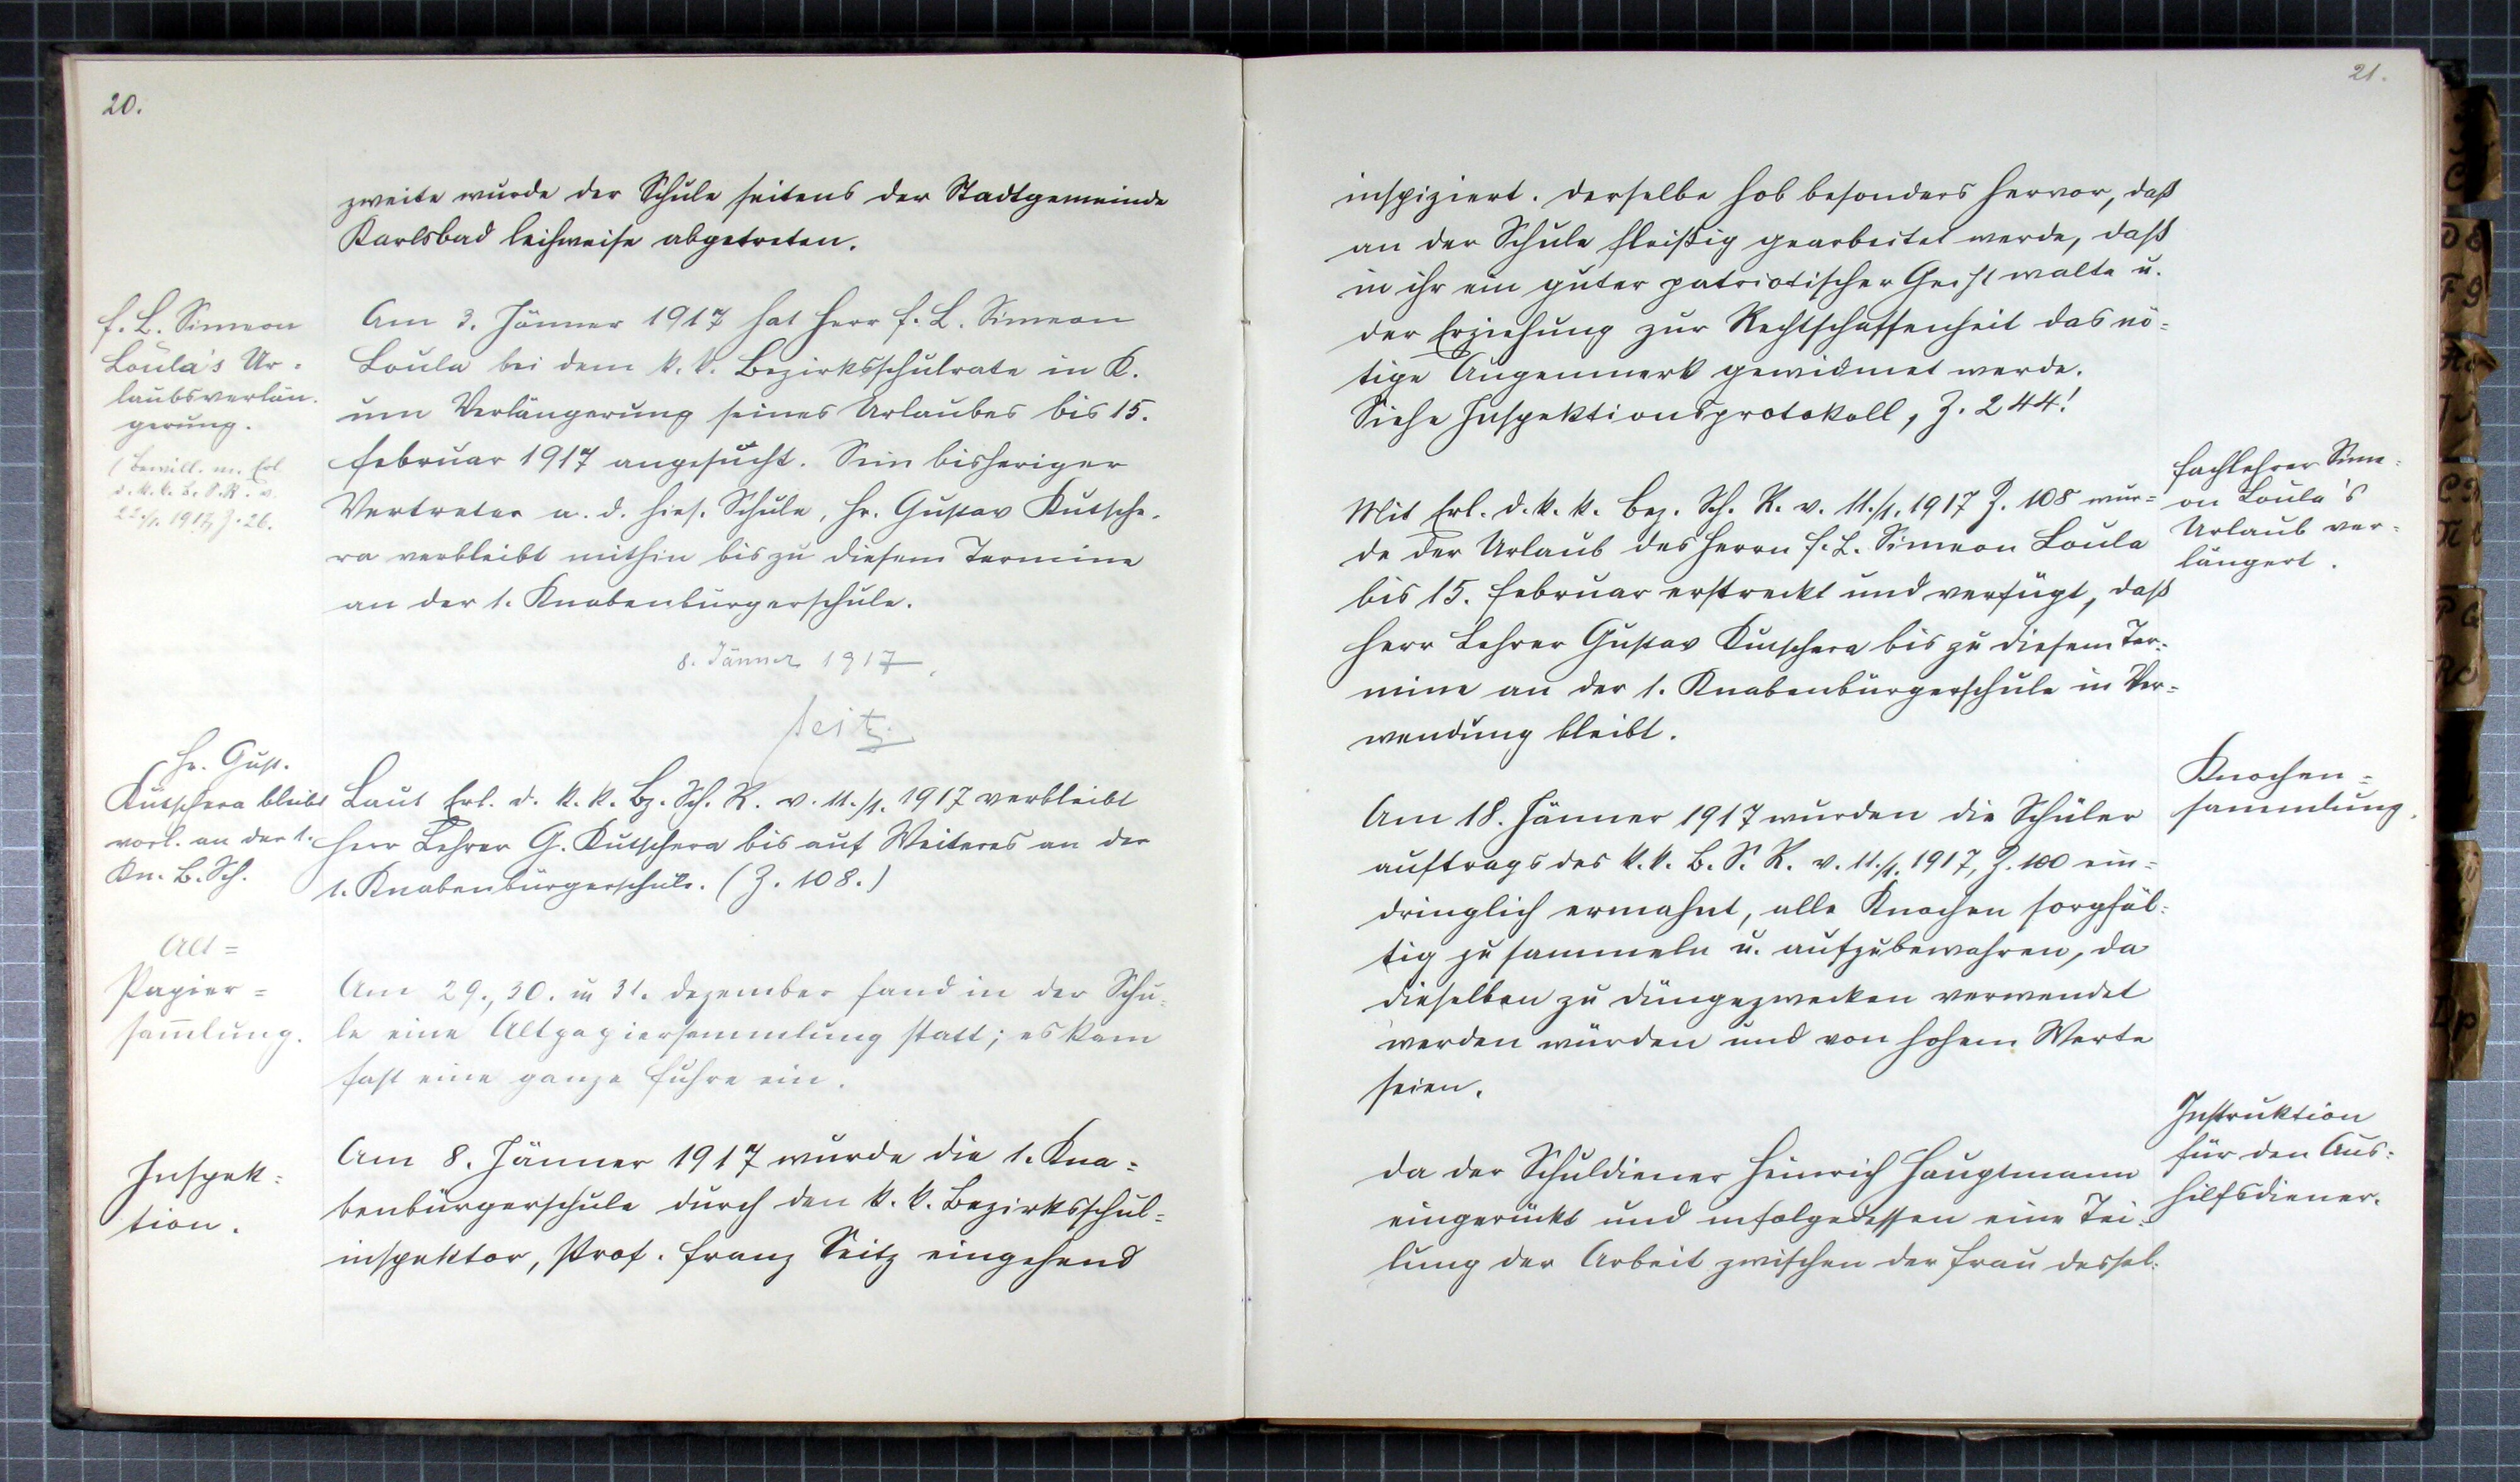 20.
zweite wurde der Schule seitens der Stadtgemeinde
Karlsbad leihweise abgetreten.
F. L. Simeon
Loula's Ur-
laubsverlän-
gerung.
(Bewill. m. Erl.
d. k. k. B. S. R. v.
22./1. 1917, Z. 26.
Am 3. Jänner 1917 hat Herr F. L. Simeon
Loula bei dem k. k. Bezirksschulrate in K.
um Verlängerung seines Urlaubes bis 15.
Februar 1917 angesucht. Sein bisheriger
Vertreter a. d. hies. Schule, Hr. Gustav Kutsche-
ra verbleibt mithin bis zu diesem Termine
an der 1. Knabenbürgerschule.
8. Jänner 1917.
Seitz
Hr. Gust.
Kutschera bleibt
vorl. an der 1.
Kn. B. Sch.
Laut Erl. d. k. k. Bz. Sch. R. v. 11./1. 1917 verbleibt
Herr Lehrer G. Kutschera bis auf Weiteres an der
1. Knabenbürgerschule. (Z. 108.)
Alt=
Papier=
sam̄lung.
Am 29., 30. u 31. Dezember fand in der Schu-
le eine Altpapiersammlung statt; es kam
fast eine ganze Fuhre ein.
Inspek=
tion.
Am 8. Jänner 1917 wurde die 1. Kna=
benbürgerschule durch den k. k. Bezirksschul=
inspektor, Prof. Franz Seitz eingehend
21.
inspiziert. Derselbe hob besonders hervor, daß
an der Schule fleißig gearbeitet werde, daß
in ihr ein guter patriotischer Geist walte u.
der Erziehung zur Rechtschaffenheit das nö=
tige Augenmerk gewidmet werde.
Siehe Inspektionsprotokoll, Z. 244!
Fachlehrer Sime=
on Loula's
Urlaub ver=
längert.
Mit Erl. d. k. k. Bez. Sch. R. v. 11./1. 1917 Z. 108 wur=
de der Urlaub des Herrn F. L. Simeon Loula
bis 15. Februar erstreckt und verfügt, daß
Herr Lehrer Gustav Kutschera bis zu diesem Ter=
mine an der 1. Knabenbürgerschule in Ver=
wendung bleibt.
Knochen=
sammlung.
Am 18. Jänner 1917 wurden die Schüler
auftrags des k. k. B. S. R. v. 11./1. 1917, Z. 100 ein=
dringlich ermahnt, alle Knochen sorgfäl=
tig zu sammeln u. aufzubewahren, da
dieselben zu Düngezwecken verwendet
werden würden und von hohem Werte
seien.
Instruktion
für den Aus=
hilfsdiener.
Da der Schuldiener Heinrich Hauptmann
eingerückt und infolgedessen eine Tei=
lung der Arbeit zwischen der Frau dessel-